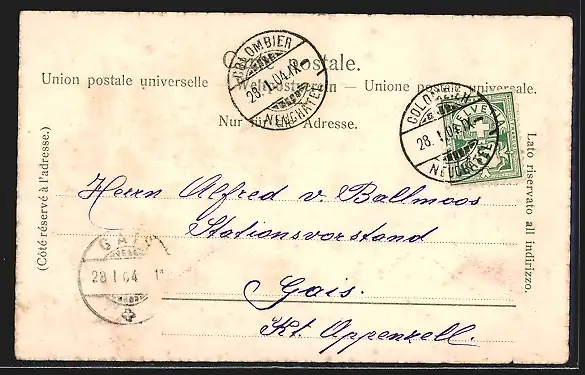 Postale.
Union postale universelle — Weltpostverein — Unione postale universale.
Nur für die Adresse.
(Côté réservé à l'adresse.)
Lato riservato all indirizzo.
COLOMBIER
28.I.04.IX-
NEUCHÂTEL
COLOMBIER
28.I.04.IX
NEUCHÂTEL
HELVETIA
Herrn Alfred v. Ballmoos
Stationsvorstand
Gais.
Kt. Appenzell.
GAIS
28.I.04